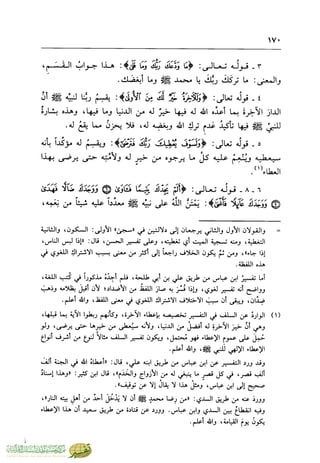 ١٧٠
٣ ـ قولـه تعـالـى: ﴿مَا وَدَّعَكَ رَبُّكَ وَمَا قَلَى﴾: هـذا جـوابُ القَـسَـمِ،
والمعنى: ما تركَكَ ربُّكَ يا محمد ﷺ وما أبغضك.
٤ ـ قوله تعالى: ﴿وَلَلْآخِرَةُ خَيْرٌ لَكَ مِنَ الْأُولَى﴾: يقسِمُ ربُّنا لنبيِّه ﷺ أنَّ
الدارَ الآخِرةَ بما أعدَّه الله له فيها خيرٌ له من الدنيا وما فيها، وهذه بشارةٌ
للنبيِّ ﷺ فيها تأكيدُ عدمِ تركِ الله وبغضِه له، فلا يحزنُ مما يقعُ له.
٥ ـ قوله تعالى: ﴿وَلَسَوْفَ يُعْطِيكَ رَبُّكَ فَتَرْضَى﴾: ويقسِمُ له مؤكِّداً بأنه
سيعطيه ويُنْعِمُ عليه كلَّ ما يرجوه من خيرٍ له ولأمَّتِه حتى يرضى بهذا
العطاء(١).
٦ ـ ٨ ـ قولـه تعـالـى: ﴿أَلَمْ يَجِدْكَ يَتِيمًا فَآوَى ۞ وَوَجَدَكَ ضَالًّا فَهَدَى
۞ وَوَجَدَكَ عَائِلًا فَأَغْنَى﴾: يَمْتَنُّ اللهُ على نبيِّه ﷺ معدِّداً عليه شيئاً من نِعَمِه،
= والقولان الأول والثاني يرجعان إلى دلالتين في «سجى» الأولى: السكون، والثانية
التغطية، ومنه تسجية الميت أي تغطيته، وعلى تفسير الحسن، قال: «إذا لبس الناس،
إذا جاء»، ومن ثَمَّ يكون الخلاف راجعاً إلى أكثر من معنى بسبب الاشتراك اللغوي في
هذه اللفظة.
أما تفسيرُ ابن عباس من طريق علي بن أبي طلحة، فلم أجدْه مذكوراً في كتب اللغة،
وواضح أنه تفسير لغوي، وإذا فُسِّرَ به صار اللفظُ من الأضداد؛ لأن أقبل بظلامه وذهبَ
ضِدَّان، ويبقى أن سببَ الاختلاف الاشتراك اللغوي في معنى اللفظ، والله أعلم.
(١) الواردُ عن السلف في التفسير تخصيصه بإعطاء الآخرة، وكأنهم ربطوا الآيةَ بما قبلها،
وهي أنَّ خيرَ الآخرة له أفضلُ من الدنيا، ولأنه سيُعطى من خيرها حتى يرضى، ولو
حُمِلَ على عموم الإعطاء فهو مُحتمل، ويكون تفسير السلف مثالاً لنوعٍ من أشرف أنواع
الإعطاء الإلهي للنبي ﷺ، والله أعلم.
وقد ورد التفسير عن ابن عباس من طريق ابنه علي، قال: «أعطاهُ اللهُ في الجنة ألفَ
ألف قصر، في كل قصرٍ ما ينبغي له من الأزواج والخدَم»، قال ابن كثير: «وهذا إسنادٌ
صحيح إلى ابن عباس، ومثلُ هذا لا يقالُ إلا عن توقيف».
وورد عنه من طريق السدي: «من رضا محمدٍ ﷺ أن لا يَدْخُلَ أحدٌ من أهل بيته النار»،
وفيه انقطاعٌ بين السدي وابن عباس. وورد عن قتادة من طريق سعيد أن هذا الإعطاء
يكونُ يومَ القيامة، والله أعلم.